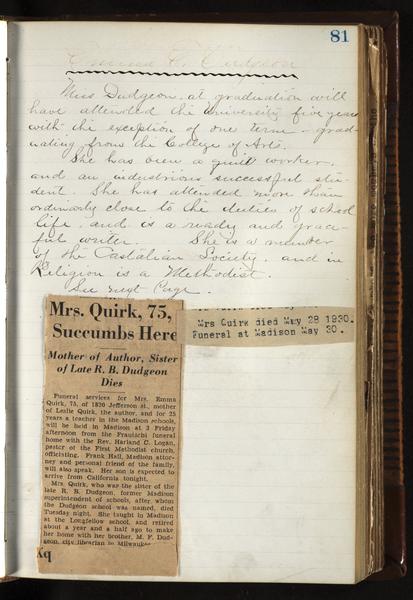 81
Emma R. Dudgeon
Miss Dudgeon, at graduation will
have attended the University five years
with the exception of one term - grad-
uating from the College of Arts.
She has been a quiet worker,
and an industrious successful stu-
dent. She has attended more than
ordinarily close to the duties of school
life, and is a ready and grace-
ful writer. She is a member
of the Castalian Society, and in
Religion is a Methodist.
See next Page.
Mrs. Quirk, 75,
Succumbs Here
Mother of Author, Sister
of Late R. B. Dudgeon
Dies
Funeral services for Mrs. Emma
Quirk, 75, of 1820 Jefferson st., mother
of Leslie Quirk, the author, and for 25
years a teacher in the Madison schools,
will be held in Madison at 2 Friday
afternoon from the Frautschi funeral
home with the Rev. Harland C. Logan,
pastor of the First Methodist church,
officiating. Frank Hall, Madison attor-
ney and personal friend of the family,
will also speak. Her son is expected to
arrive from California tonight.
Mrs. Quirk, who was the sister of the
late R. B. Dudgeon, former Madison
superintendent of schools, after whom
the Dudgeon school was named, died
Tuesday night. She taught in Madison
at the Longfellow school, and retired
about a year and a half ago to make
her home with her brother, M. F. Dud-
geon, city librarian in Milwaukee
Mrs Quirk died May 28 1930.
Funeral at Madison May 30.